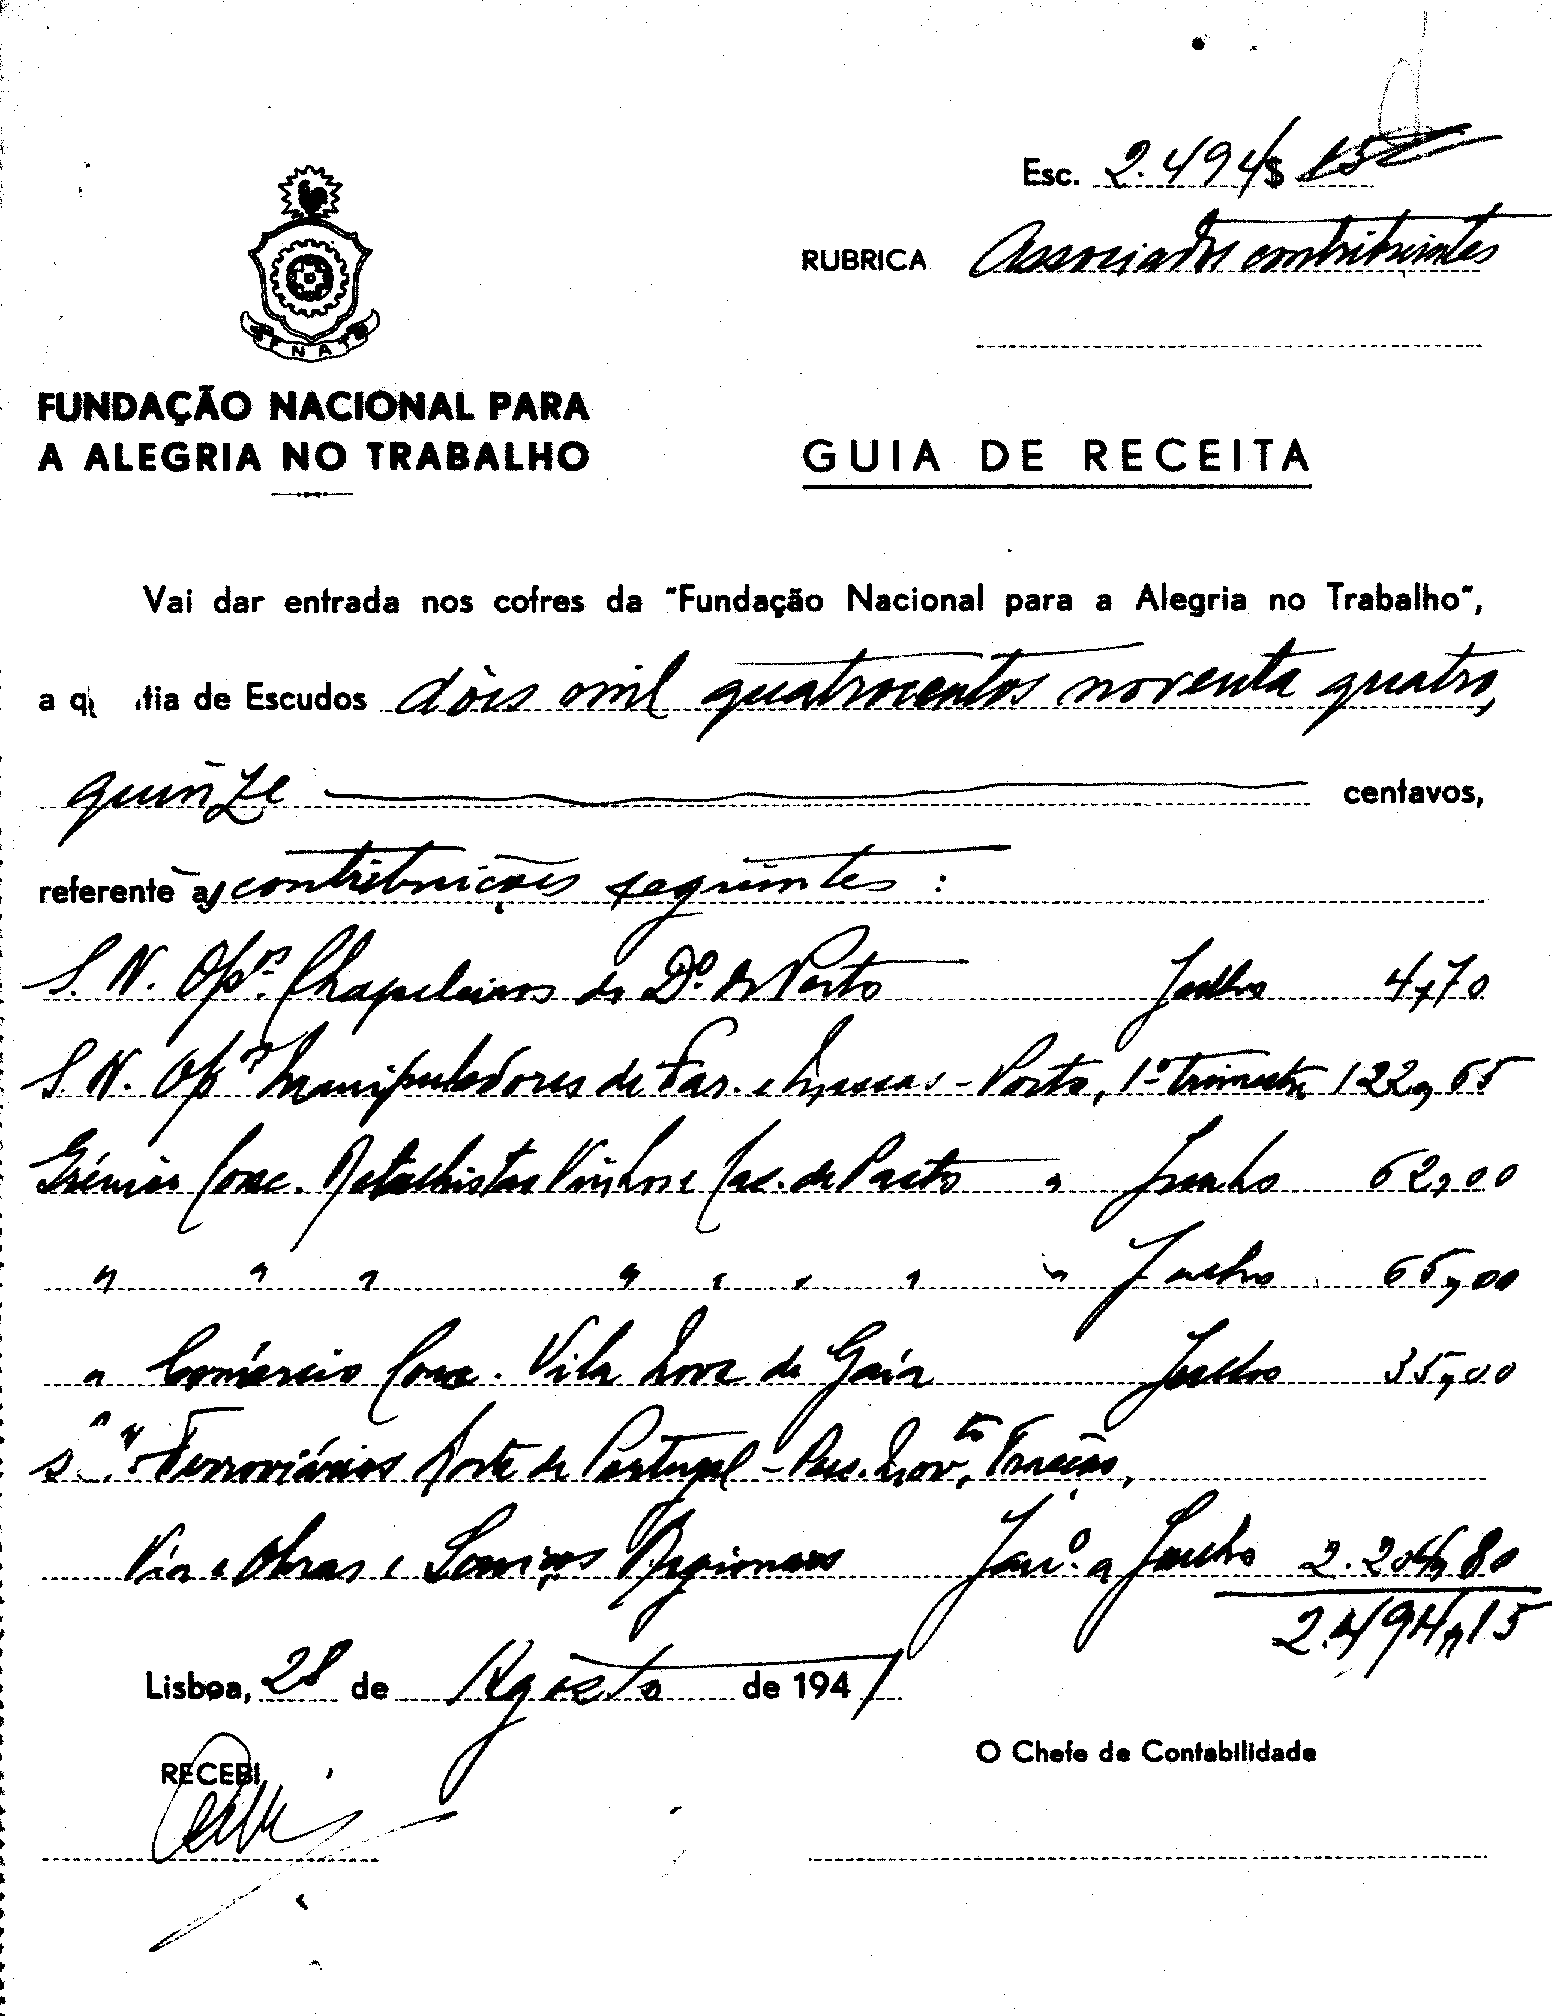 Esc. 2.494$15
RUBRICA Associados contribuintes
FNAT
FUNDAÇÃO NACIONAL PARA
A ALEGRIA NO TRABALHO
GUIA DE RECEITA
Vai dar entrada nos cofres da "Fundação Nacional para a Alegria no Trabalho",
a q tia de Escudos dois mil quatrocentos noventa quatro,
quinze centavos,
referente as contribuições seguintes :
S. N. Oprs. Chapeleiros do Do. do Porto Julho 4,70
S. N. Oprs Manipuladores de Far. e Massas - Porto, 1º trimestre 122,65
Grémio Conc. Retalhistas Vinhos e Cas. de Pasto " Junho 62,00
" " " " " " " " Julho 65,00
" Comércio Conc. Vila Nova de Gaia Julho 35,00
S. " " Ferroviários Norte de Portugal - Pes. Movto, Tracção,
Via e Obras e Serviços Regionais Janº. a Junho 2.204,80
2.494,15
Lisboa, 28 de Agôsto de 1941
RECEBI
O Chefe da Contabilidade